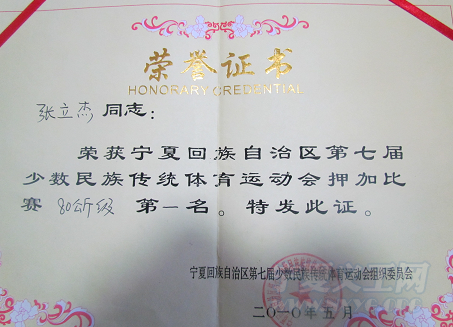 荣誉证书
HONORARY CREDENTIAL
张立杰 同志：
荣获宁夏回族自治区第七届
少数民族传统体育运动会押加比
赛 80公斤级 第一名。特发此证。
宁夏回族自治区第七届少数民族传统体育运动会组织委员会
二〇一〇年五月